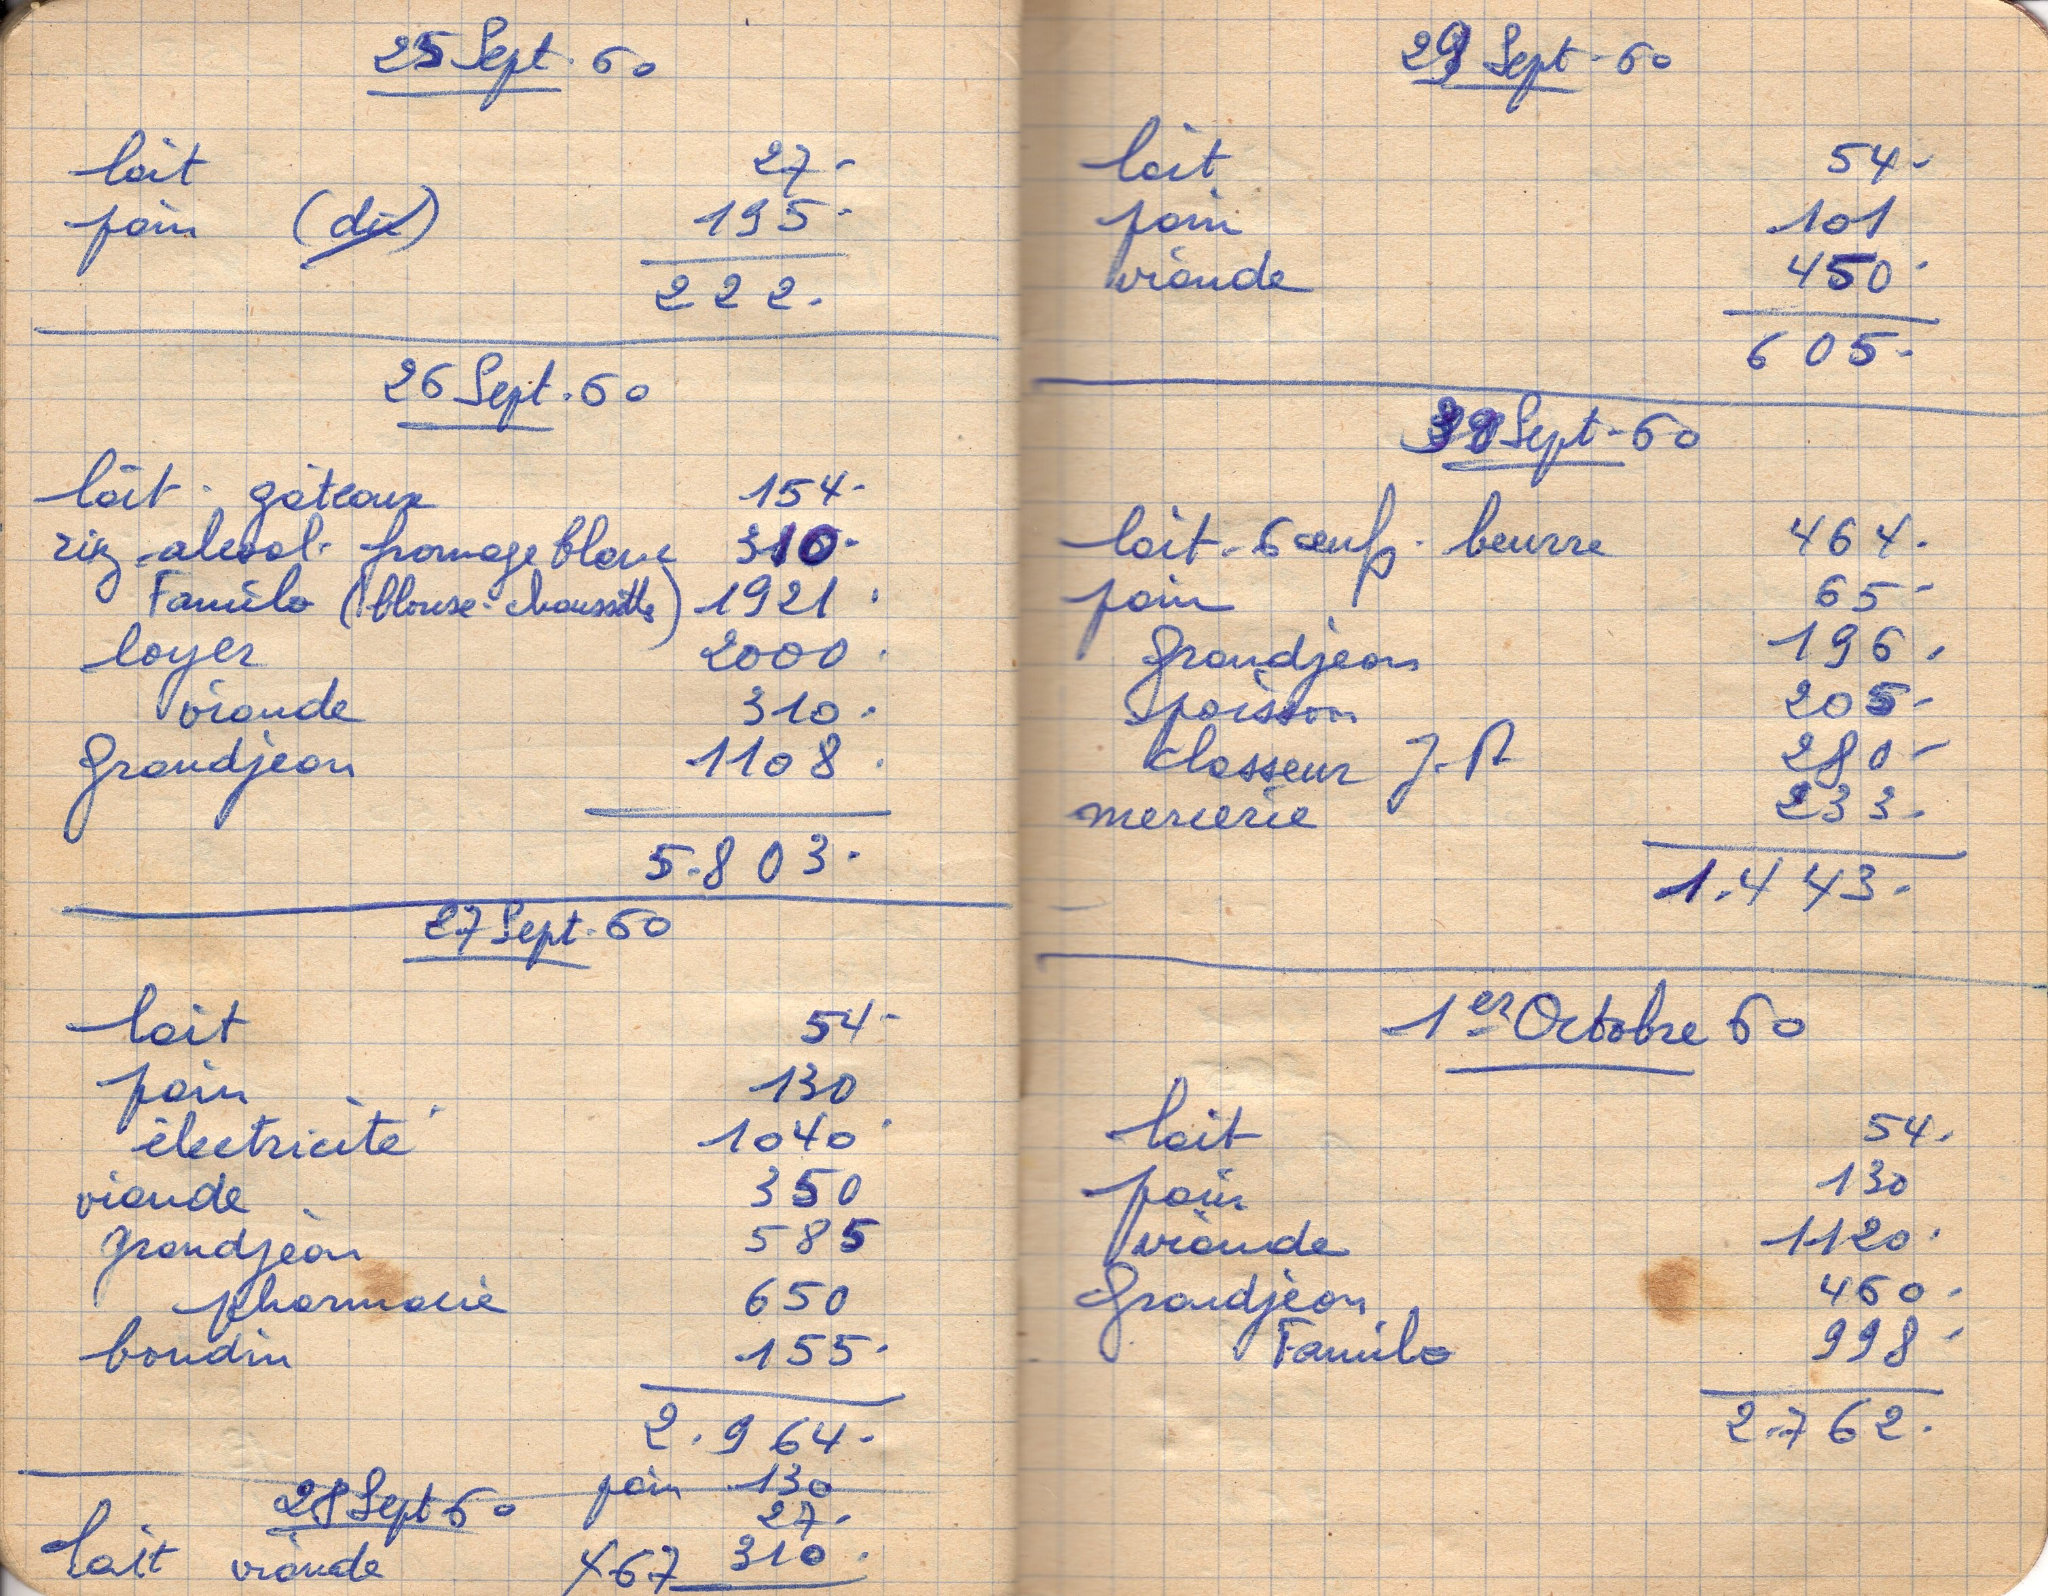 25 Sept. 60
lait 27-
pain (dû) 195-
222.
26 Sept. 60
lait - gâteaux 154-
riz - alcool - fromage blanc 310-
Familo (blouse - chaussettes) 1921.
loyer 2000.
viande 310.
Grandjean 1108.
5.803.
27 Sept. 60
lait 54-
pain 130
électricité 1040.
viande 350
Grandjean 585
pharmacie 650
boudin 155.
2.964.
28 Sept 60 pain 130
27.
lait viande 467 310.
29 Sept - 60
lait 54-
pain 101
viande 450.
605-
30 Sept - 60
lait - 6 œufs - beurre 464.
pain 65-
Grandjean 196.
poisson 205-
classeur J.P 280-
mercerie 233.
1.443.
1er Octobre 60
lait 54.
pain 130
viande 1120.
Grandjean 460.
Familo 998-
2.762.